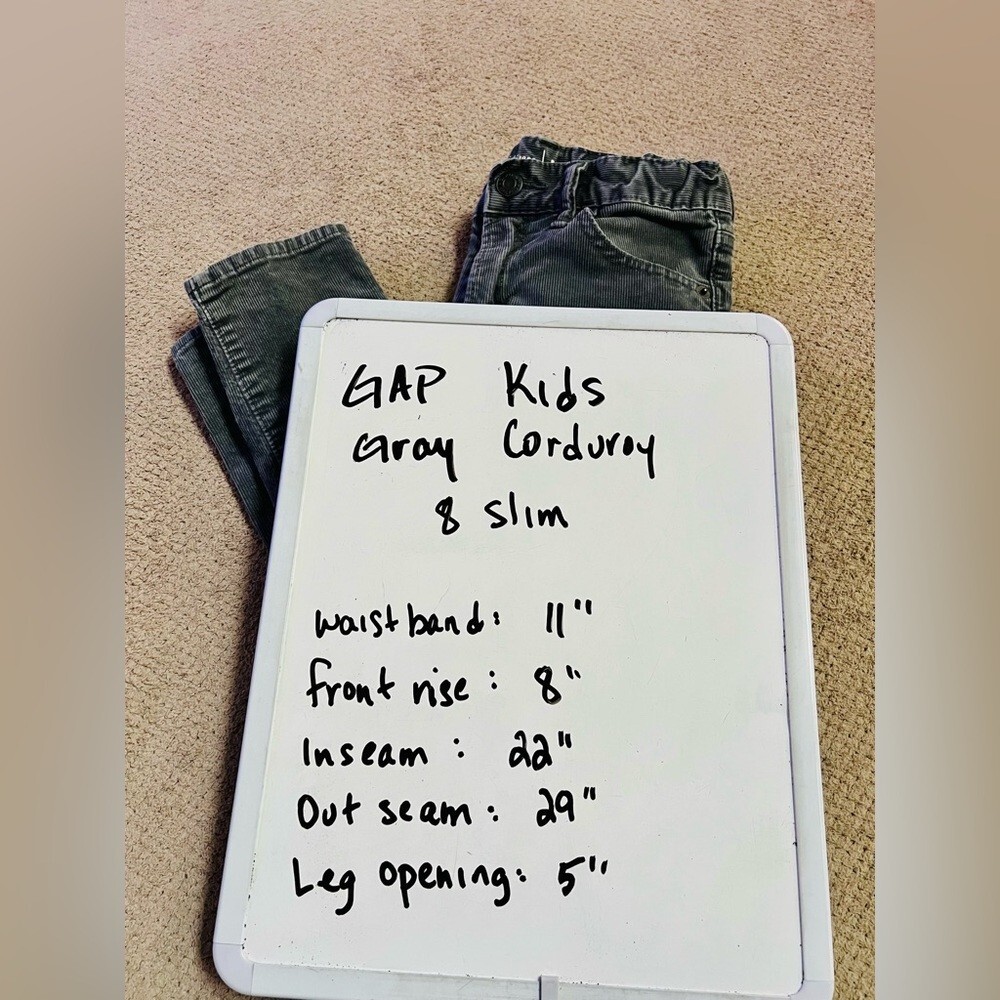 GAP Kids
Gray Corduroy
8 slim
waistband: 11"
front rise: 8"
Inseam: 22"
Out seam: 29"
Leg opening: 5"